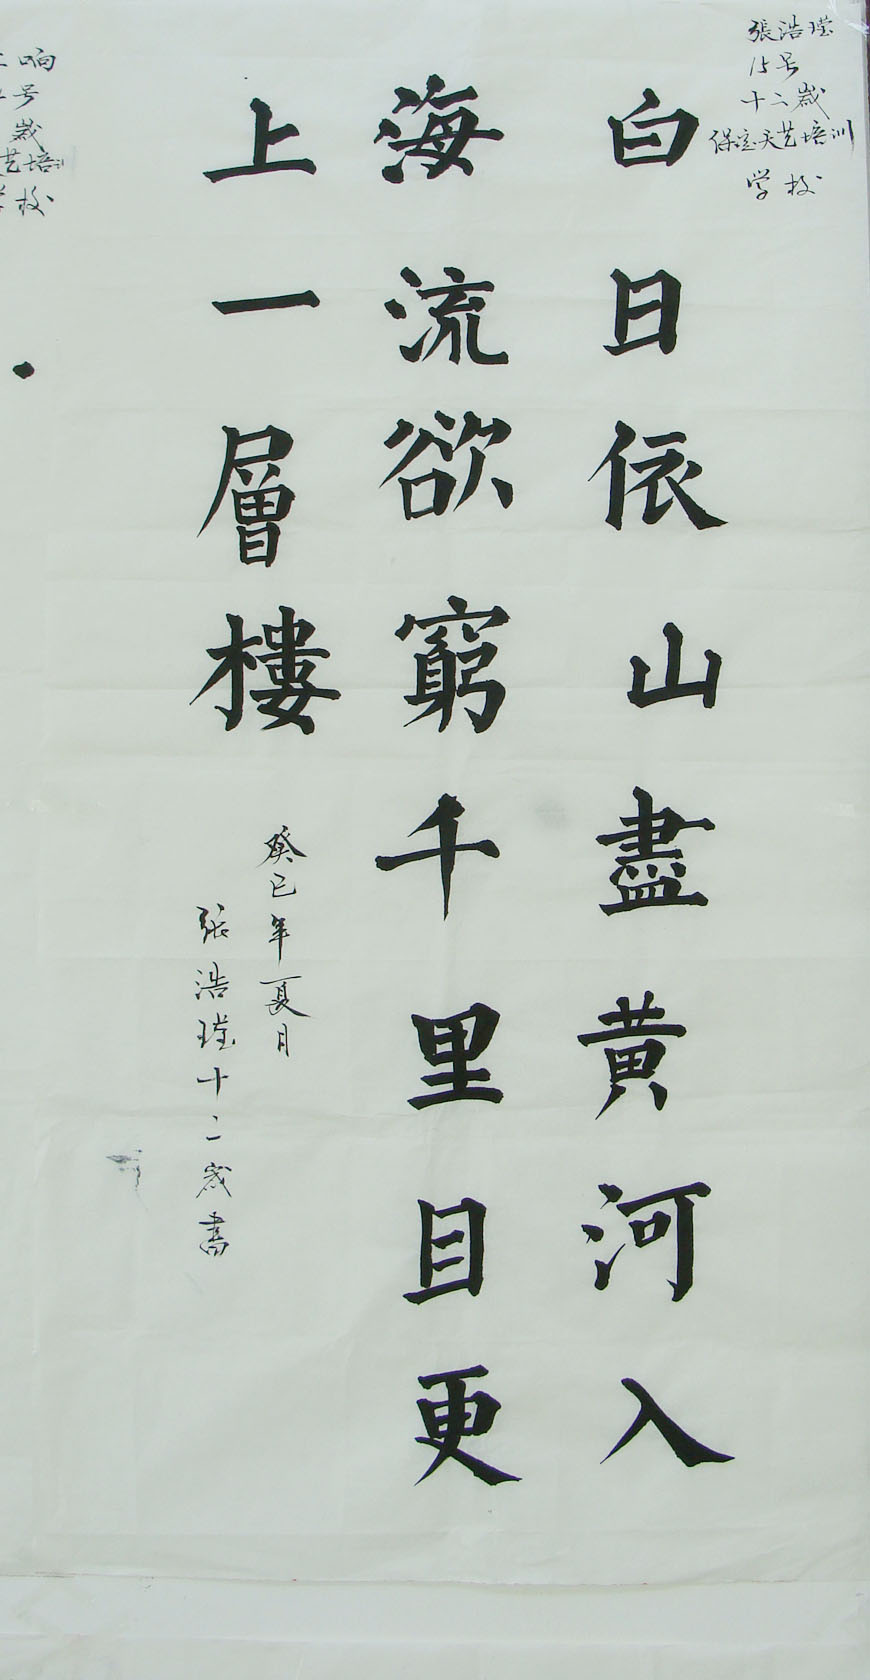 張浩瑩
15号
十二歲
保定天艺培训
学校
白日依山盡黄河入
海流欲窮千里目更
上一層樓
癸巳年夏月
张浩瑩十二歲書
响
号
歲
艺培训
学校